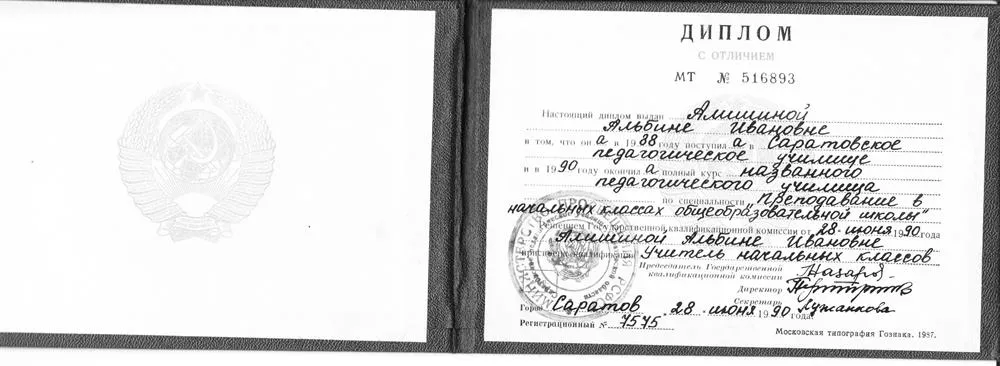 ДИПЛОМ
С ОТЛИЧИЕМ
МТ № 516893
Настоящий диплом выдан Алишиной
Альбине Ивановне
в том, что она в 1988 году поступила в Саратовское
педагогическое училище
и в 1990 году окончила полный курс названного
педагогического училища
по специальности „Преподавание в
начальных классах общеобразовательной школы"
Решением Государственной квалификационной комиссии от 28 июня 1990 года
Алишиной Альбине Ивановне
присвоена квалификация Учитель начальных классов
Председатель Государственной
квалификационной комиссии
Директор
Секретарь
Город Саратов 28 июня 1990 года.
Регистрационный № 7575.
Московская типография Гознака. 1987.